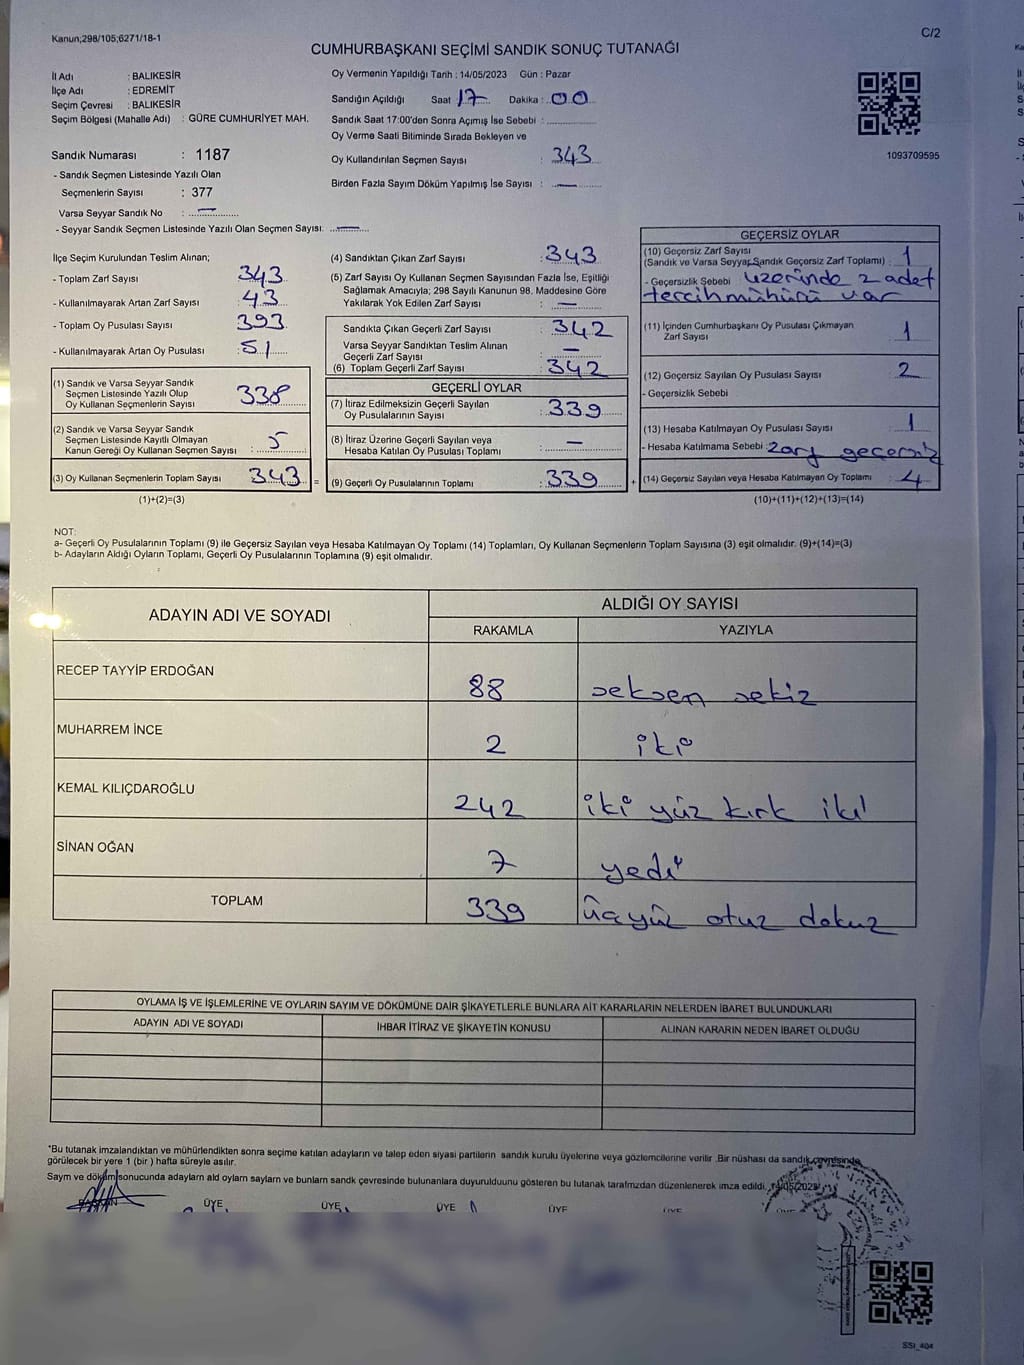 Kanun;298/105;6271/18-1
C/2
CUMHURBAŞKANI SEÇİMİ SANDIK SONUÇ TUTANAĞI
İl Adı : BALIKESİR
İlçe Adı : EDREMİT
Seçim Çevresi : BALIKESİR
Seçim Bölgesi (Mahalle Adı) : GÜRE CUMHURİYET MAH.
Sandık Numarası : 1187
- Sandık Seçmen Listesinde Yazılı Olan
Seçmenlerin Sayısı : 377
Varsa Seyyar Sandık No : —
- Seyyar Sandık Seçmen Listesinde Yazılı Olan Seçmen Sayısı: —
Oy Vermenin Yapıldığı Tarih : 14/05/2023 Gün : Pazar
Sandığın Açıldığı Saat 17 Dakika : 00
Sandık Saat 17:00'den Sonra Açımış İse Sebebi :
Oy Verme Saati Bitiminde Sırada Bekleyen ve
Oy Kullandırılan Seçmen Sayısı : 343
Birden Fazla Sayım Döküm Yapılmış İse Sayısı : —
1093709595
İlçe Seçim Kurulundan Teslim Alınan;
- Toplam Zarf Sayısı 343
- Kullanılmayarak Artan Zarf Sayısı : 43
- Toplam Oy Pusulası Sayısı 393
- Kullanılmayarak Artan Oy Pusulası : 51
(1) Sandık ve Varsa Seyyar Sandık
Seçmen Listesinde Yazılı Olup
Oy Kullanan Seçmenlerin Sayısı 338
(2) Sandık ve Varsa Seyyar Sandık
Seçmen Listesinde Kayıtlı Olmayan
Kanun Gereği Oy Kullanan Seçmen Sayısı : 5
(3) Oy Kullanan Seçmenlerin Toplam Sayısı 343
(1)+(2)=(3)
(4) Sandıktan Çıkan Zarf Sayısı : 343
(5) Zarf Sayısı Oy Kullanan Seçmen Sayısından Fazla İse, Eşitliği
Sağlamak Amacıyla; 298 Sayılı Kanunun 98. Maddesine Göre
Yakılarak Yok Edilen Zarf Sayısı : —
Sandıkta Çıkan Geçerli Zarf Sayısı : 342
Varsa Seyyar Sandıktan Teslim Alınan
Geçerli Zarf Sayısı : —
(6) Toplam Geçerli Zarf Sayısı : 342
GEÇERLİ OYLAR
(7) İtiraz Edilmeksizin Geçerli Sayılan
Oy Pusulalarının Sayısı : 339
(8) İtiraz Üzerine Geçerli Sayılan veya
Hesaba Katılan Oy Pusulası Toplamı : —
(9) Geçerli Oy Pusulalarının Toplamı : 339
GEÇERSİZ OYLAR
(10) Geçersiz Zarf Sayısı
(Sandık ve Varsa Seyyar Sandık Geçersiz Zarf Toplamı) : 1
- Geçersizlik Sebebi üzerinde 2 adet
tercih mühürü var
(11) İçinden Cumhurbaşkanı Oy Pusulası Çıkmayan
Zarf Sayısı : 1
(12) Geçersiz Sayılan Oy Pusulası Sayısı : 2
- Geçersizlik Sebebi
(13) Hesaba Katılmayan Oy Pusulası Sayısı : 1
- Hesaba Katılmama Sebebi : zarf geçersiz
(14) Geçersiz Sayılan veya Hesaba Katılmayan Oy Toplamı : 4
(10)+(11)+(12)+(13)=(14)
NOT:
a- Geçerli Oy Pusulalarının Toplamı (9) ile Geçersiz Sayılan veya Hesaba Katılmayan Oy Toplamı (14) Toplamları, Oy Kullanan Seçmenlerin Toplam Sayısına (3) eşit olmalıdır. (9)+(14)=(3)
b- Adayların Aldığı Oyların Toplamı, Geçerli Oy Pusulalarının Toplamına (9) eşit olmalıdır.
ADAYIN ADI VE SOYADI
ALDIĞI OY SAYISI
RAKAMLA YAZIYLA
RECEP TAYYİP ERDOĞAN 88 seksen sekiz
MUHARREM İNCE 2 iki
KEMAL KILIÇDAROĞLU 242 iki yüz kırk iki
SİNAN OĞAN 7 yedi
TOPLAM 339 üçyüz otuz dokuz
OYLAMA İŞ VE İŞLEMLERİNE VE OYLARIN SAYIM VE DÖKÜMÜNE DAİR ŞİKAYETLERLE BUNLARA AİT KARARLARIN NELERDEN İBARET BULUNDUKLARI
ADAYIN ADI VE SOYADI İHBAR İTİRAZ VE ŞİKAYETİN KONUSU ALINAN KARARIN NEDEN İBARET OLDUĞU
*Bu tutanak imzalandıktan ve mühürlendikten sonra seçime katılan adayların ve talep eden siyasi partilerin sandık kurulu üyelerine veya gözlemcilerine verilir .Bir nüshası da sandık çevresinde
görülecek bir yere 1 (bir ) hafta süreyle asılır.
Sayım ve döküm sonucunda adayların ald oyların sayların ve bunların sandık çevresinde bulunanlara duyurulduunu gösteren bu tutanak tarafmzdan düzenlenerek imza edildi. 14/05/2023
BAŞKAN ÜYE ÜYE ÜYE ÜYE ÜYE
SSİ_404